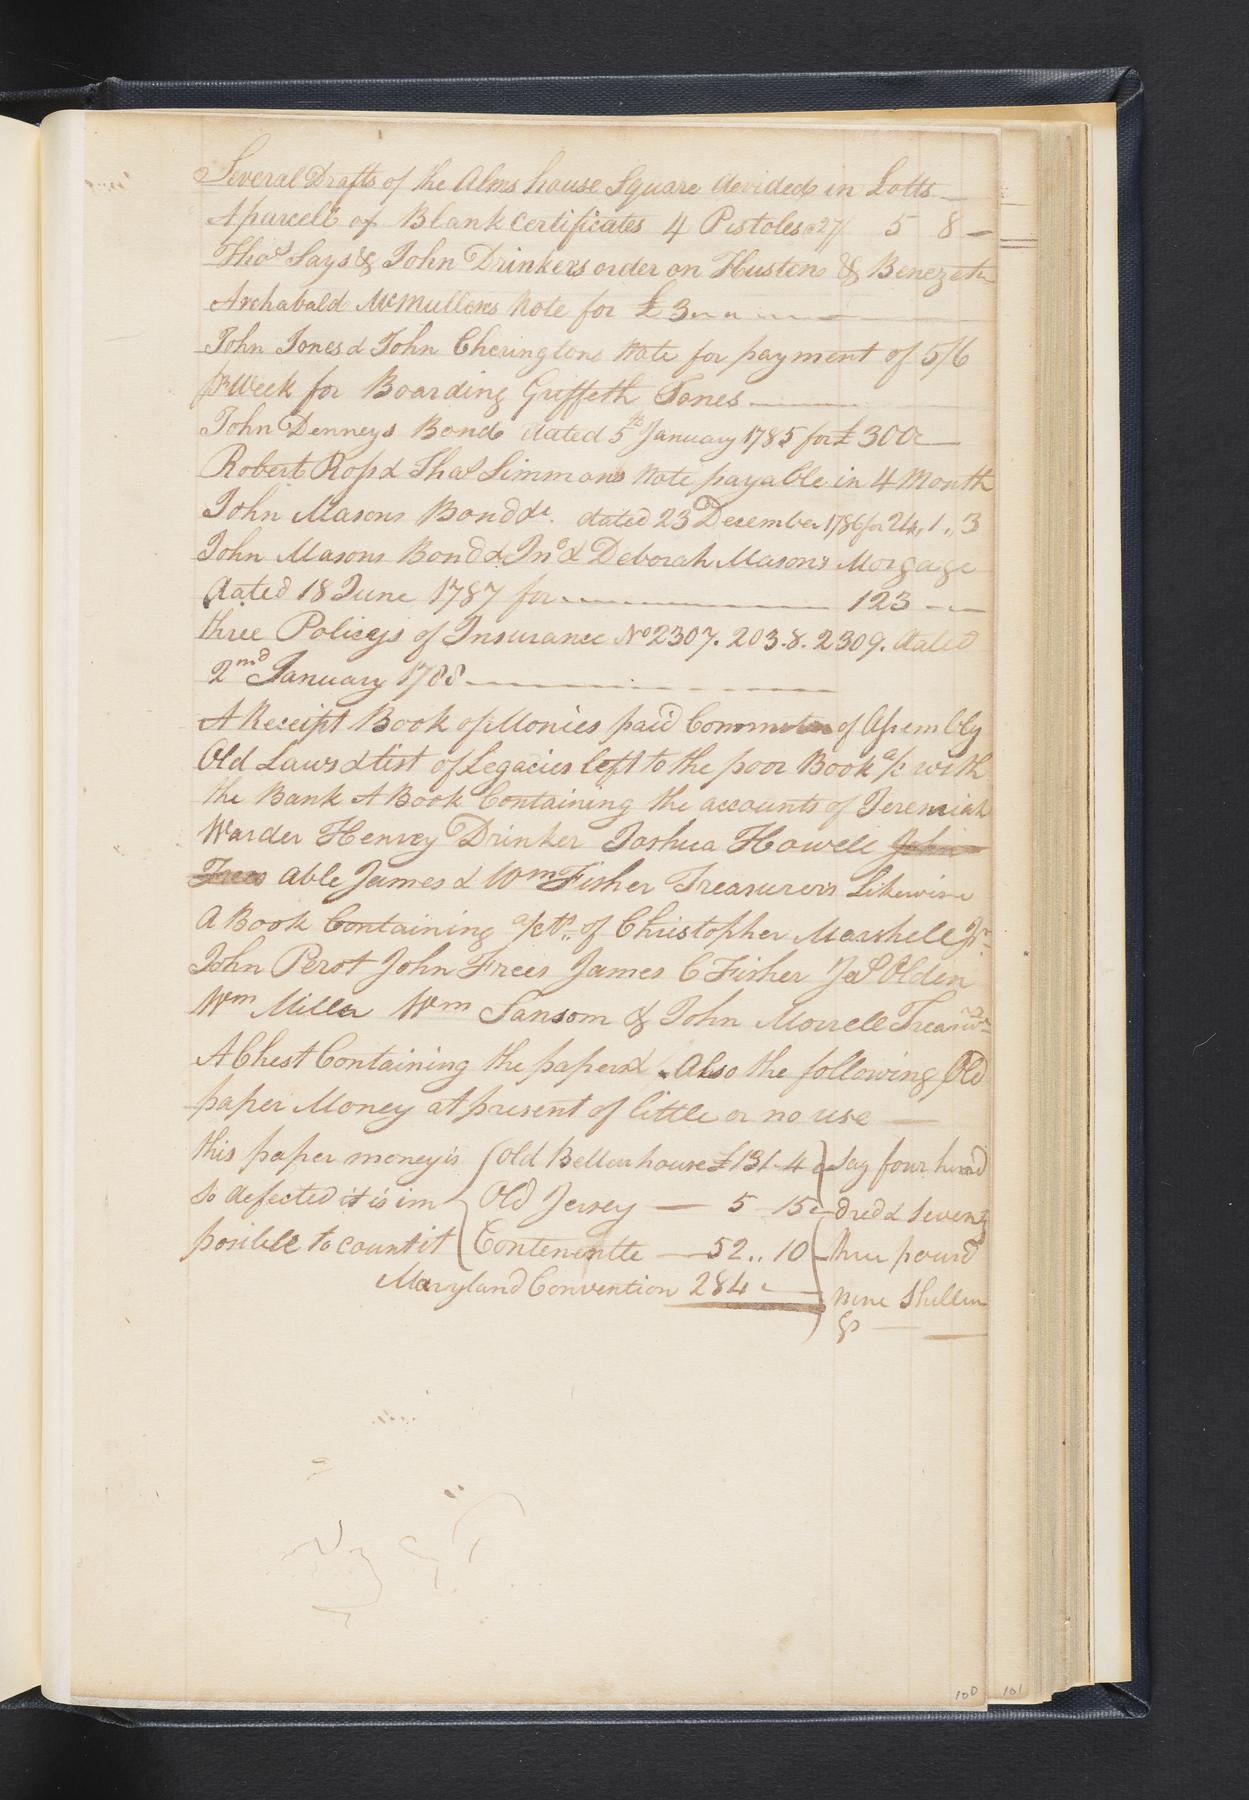 Several Drafts of the Alms house Square devided in Lotts
A parcell of Blank Certificates 4 Pistoles @ 27/ 5 8 —
Thos Says & John Drinkers order on Hustons & Benezets
Archabald McMullens Note for £3
John Jones & John Cheringtons Note for payment of 5/6
pr Week for Boarding Griffeth Jones
John Denneys Bond dated 5th January 1785 for £300
Robert Ross & Thos Simmons Note payable in 4 Month
John Masons Bond &c. dated 23 December 1786 for 24, 1, 3
John Masons Bond & Jno & Deborah Masons Morgage
dated 18 June 1787 for 123 —
three Policys of Insurance No 2307. 203.8. 2309. dated
2nd January 1788
A Receipt Book of Monies paid of Assembly
Old Laws & list of Legacies left to the poor Book a/c with
the Bank A Book Containing the accounts of Jeremiah
Warder Henrey Drinker Joshua Howell John
Frees able James & Wm Fisher Treasurers Likewise
A Book Containing a/cts of Christopher Marshell Jr
John Perot John Frees James C Fisher Jas Olden
Wm Miller Wm Sansom & John Morrell Treasurs
A Chest Containing the papers & Also the following Old
paper Money at present of little or no use —
this paper money is (Old Bettenhouse £131. 4 Say four hund
So defected it is im Old Jersey — 5 15 dred & Seventy
posibell to count it Contenentle — 52.. 10 three pound
Maryland Convention 284 nine Shillin
gs
100 101